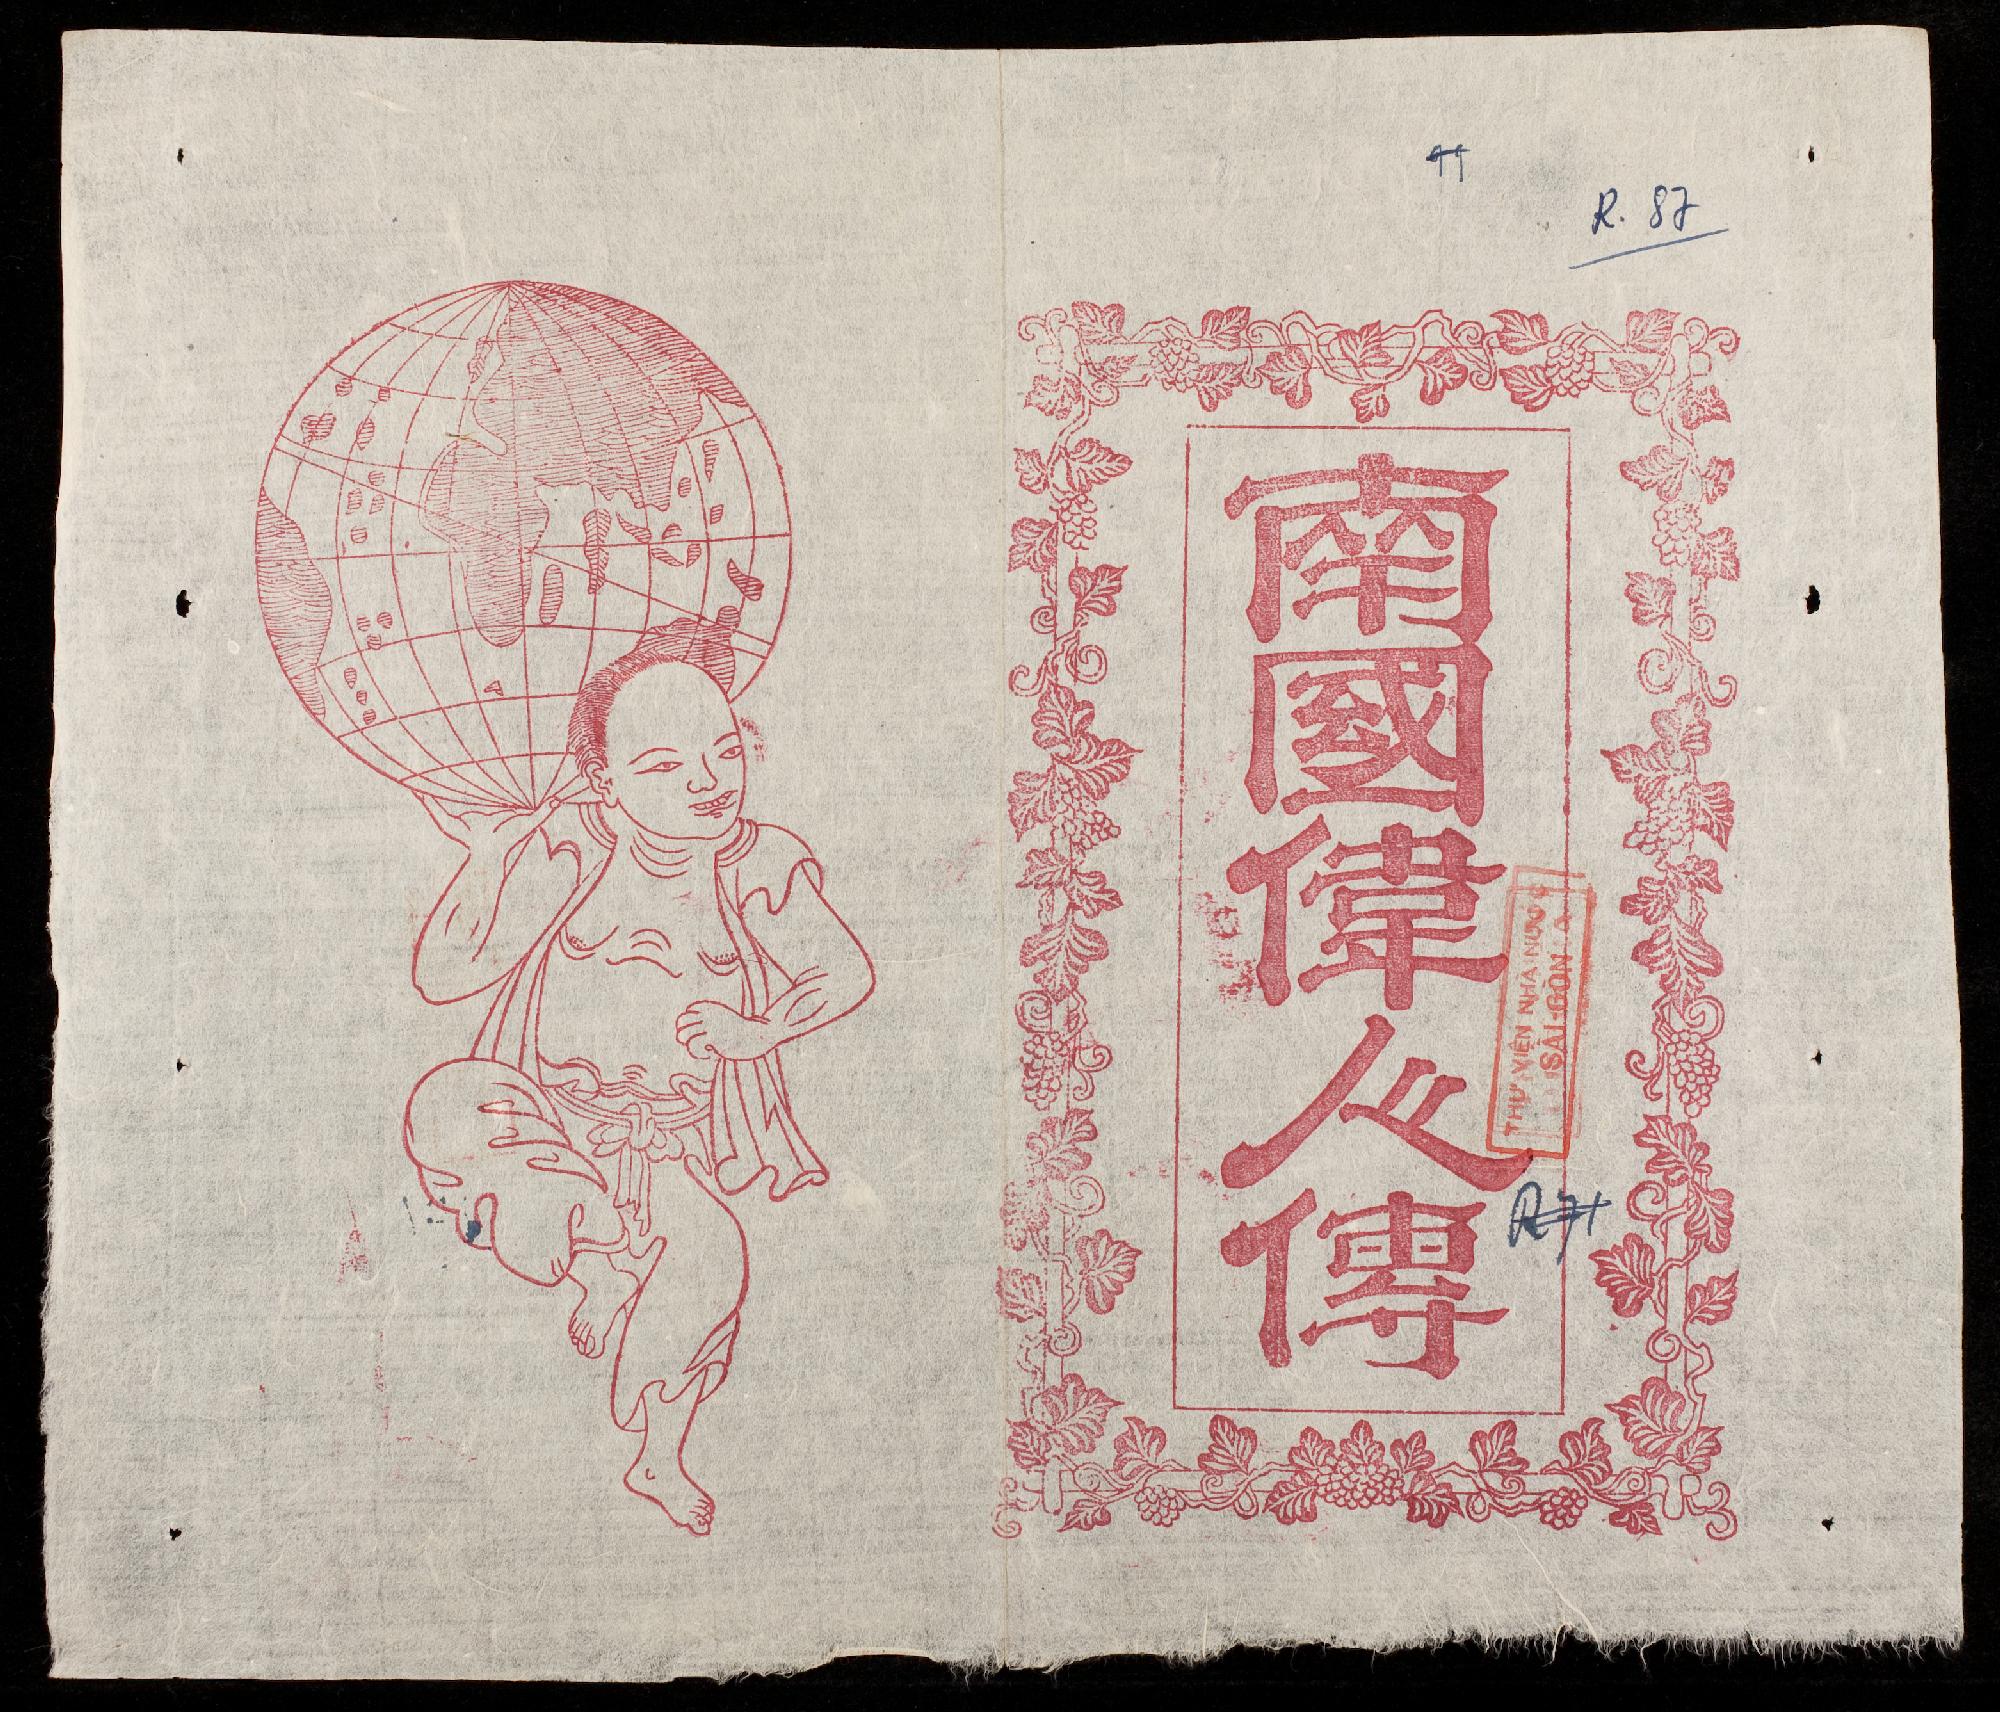 R. 87
南國偉人傳
THƯ VIỆN NHÀ NƯỚC
SÀI-GÒN
R 71